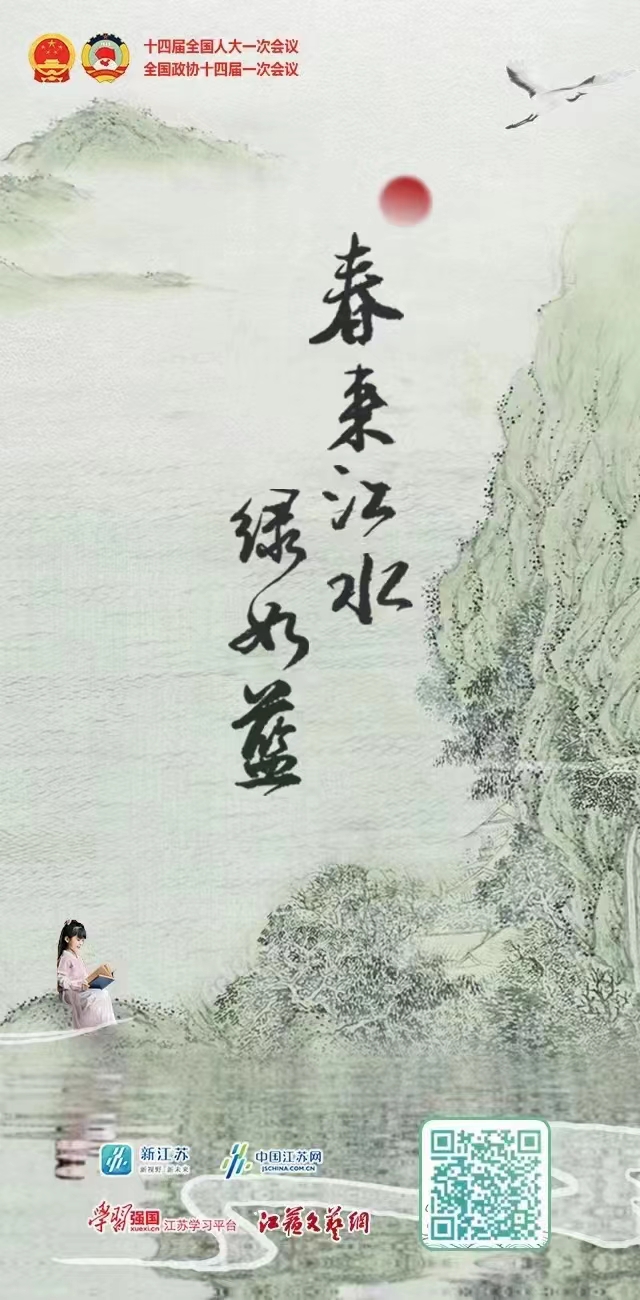 十四届全国人大一次会议
全国政协十四届一次会议
春来江水
绿如蓝
新江苏
新视野 新未来
中国江苏网
JSCHINA.COM.CN
学习强国
xuexi.cn
江苏学习平台
江苏文艺網